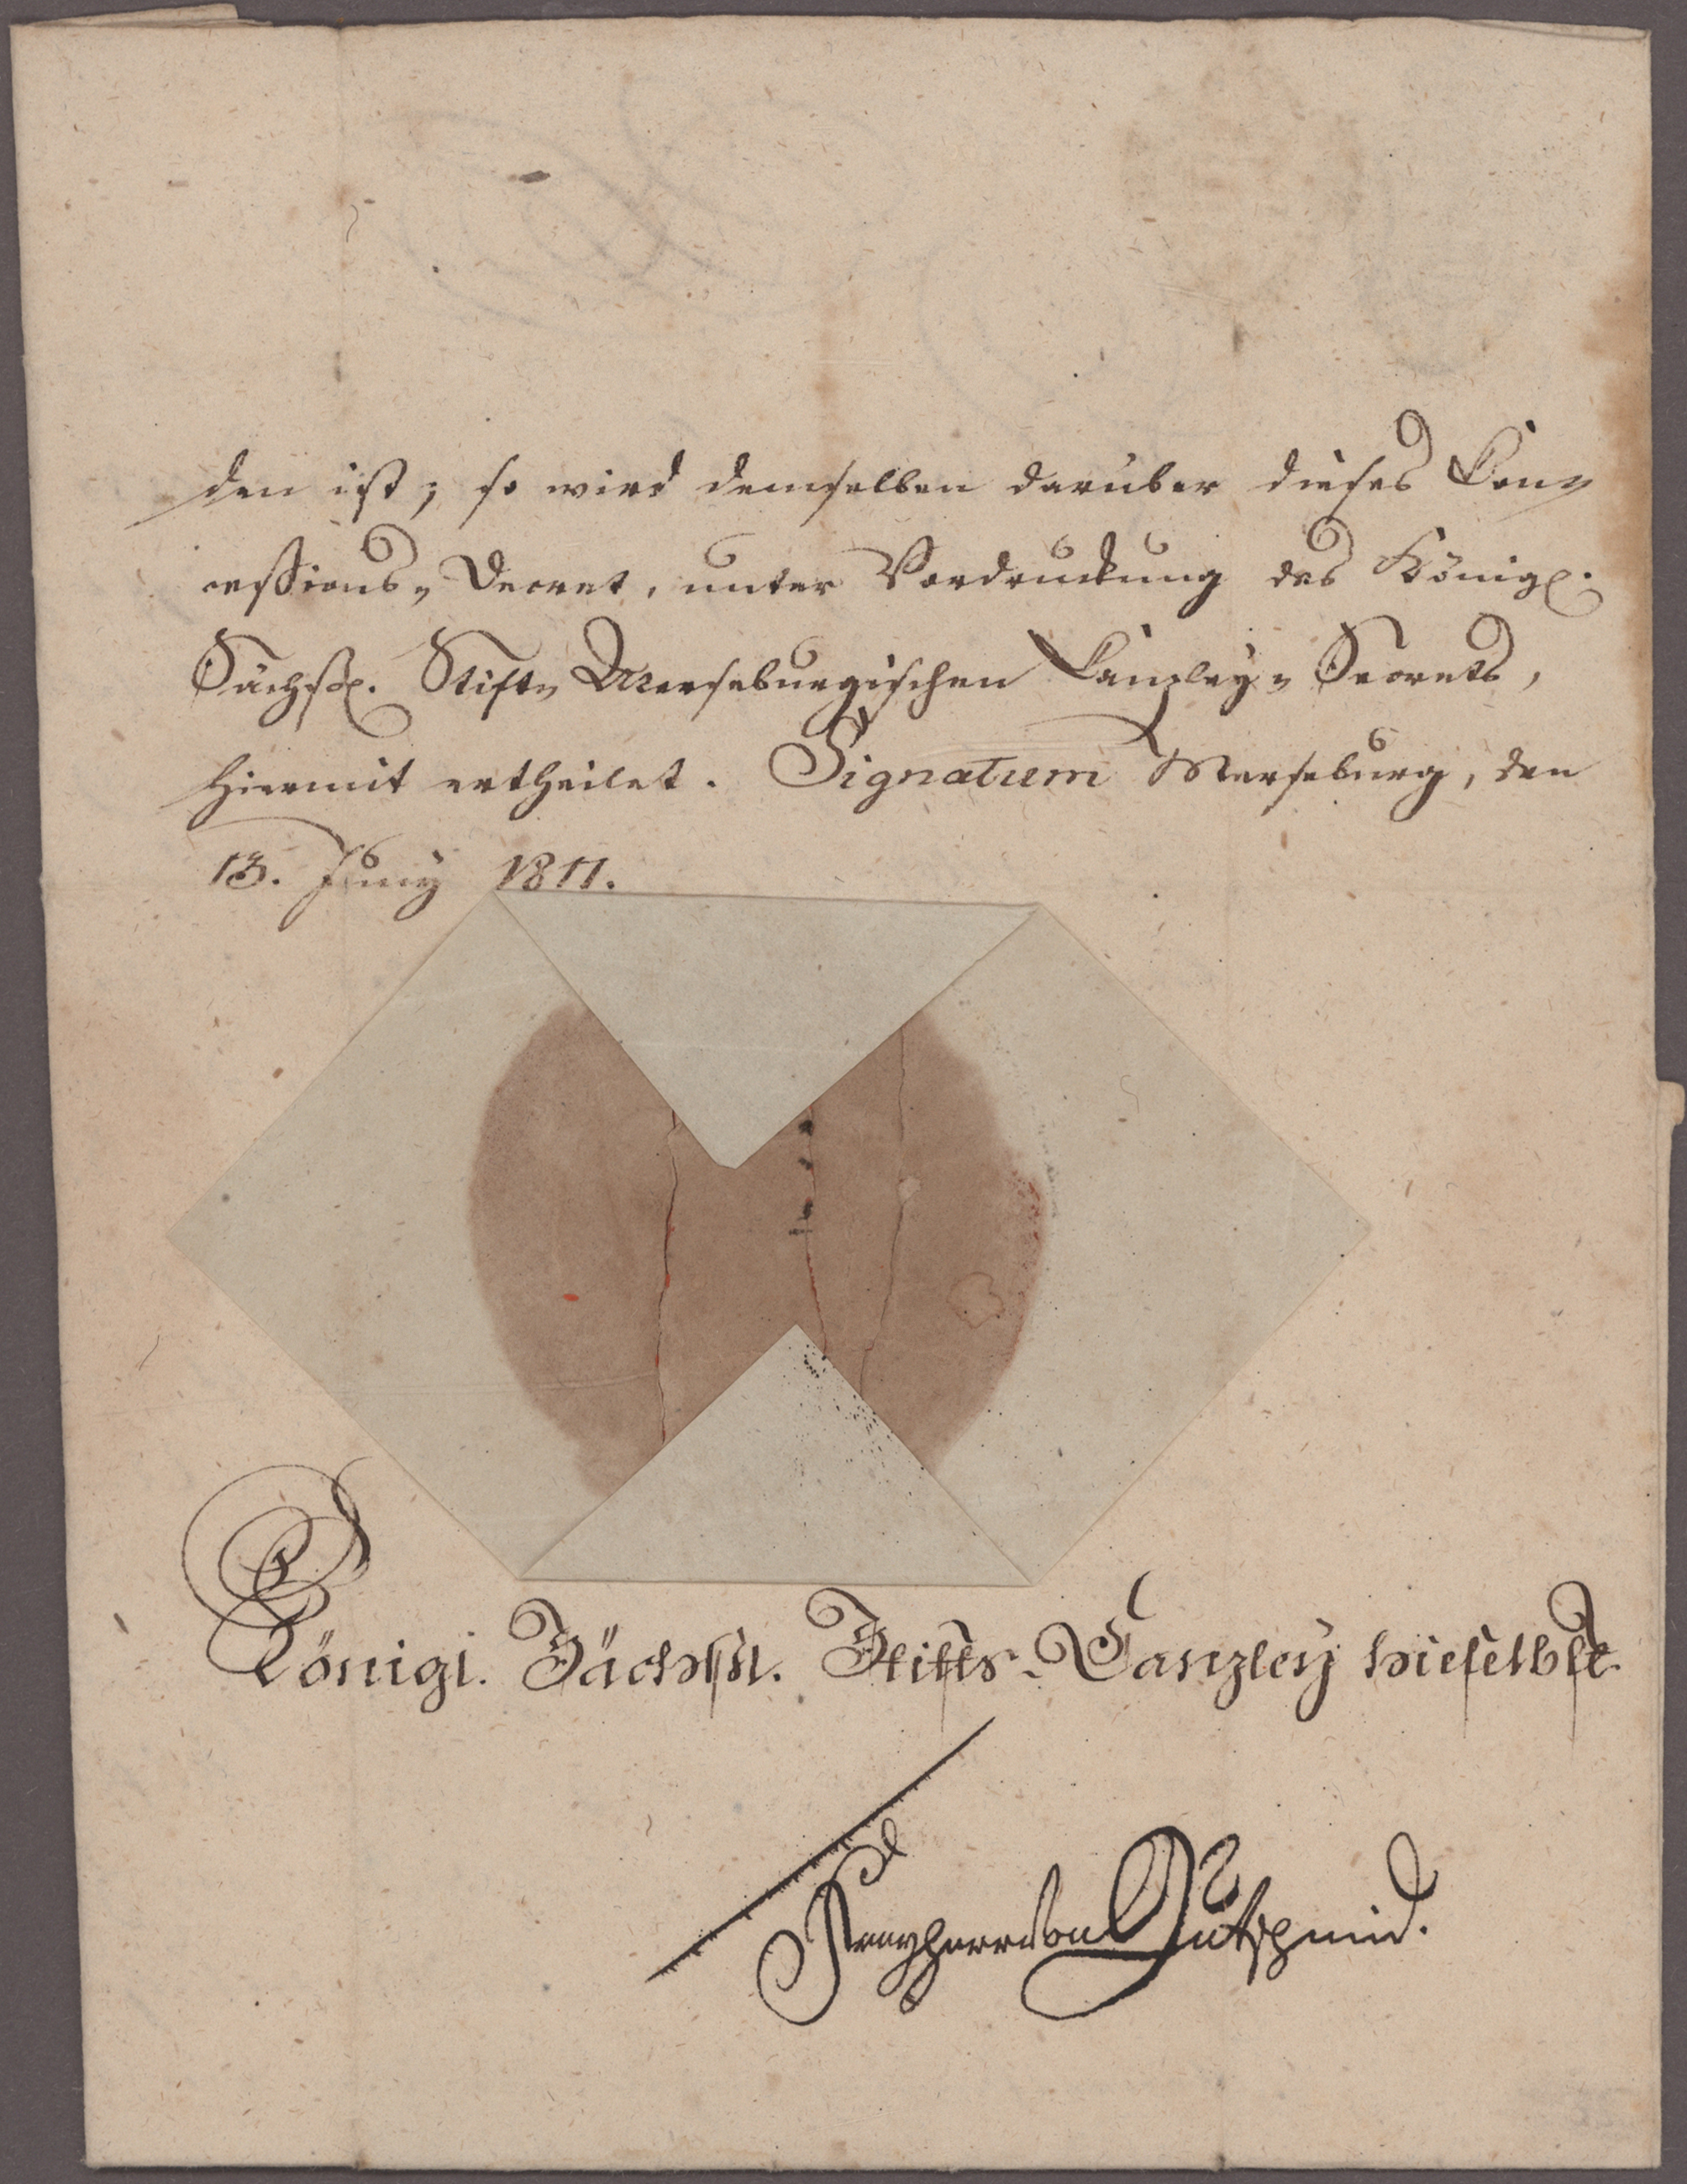 den ist; so wird demselben darüber dieses Con-
cessions- Decret, unter Vordruckung des Königl.
Sächß. Stift- Merseburgischen Canzley- Secrets,
hiermit ertheilet. Signatum Merseburg, den
13. Juny 1811.
Königl. Sächßl. Stifts-Canzley hieselbst
Freyherr von Gutschmid.